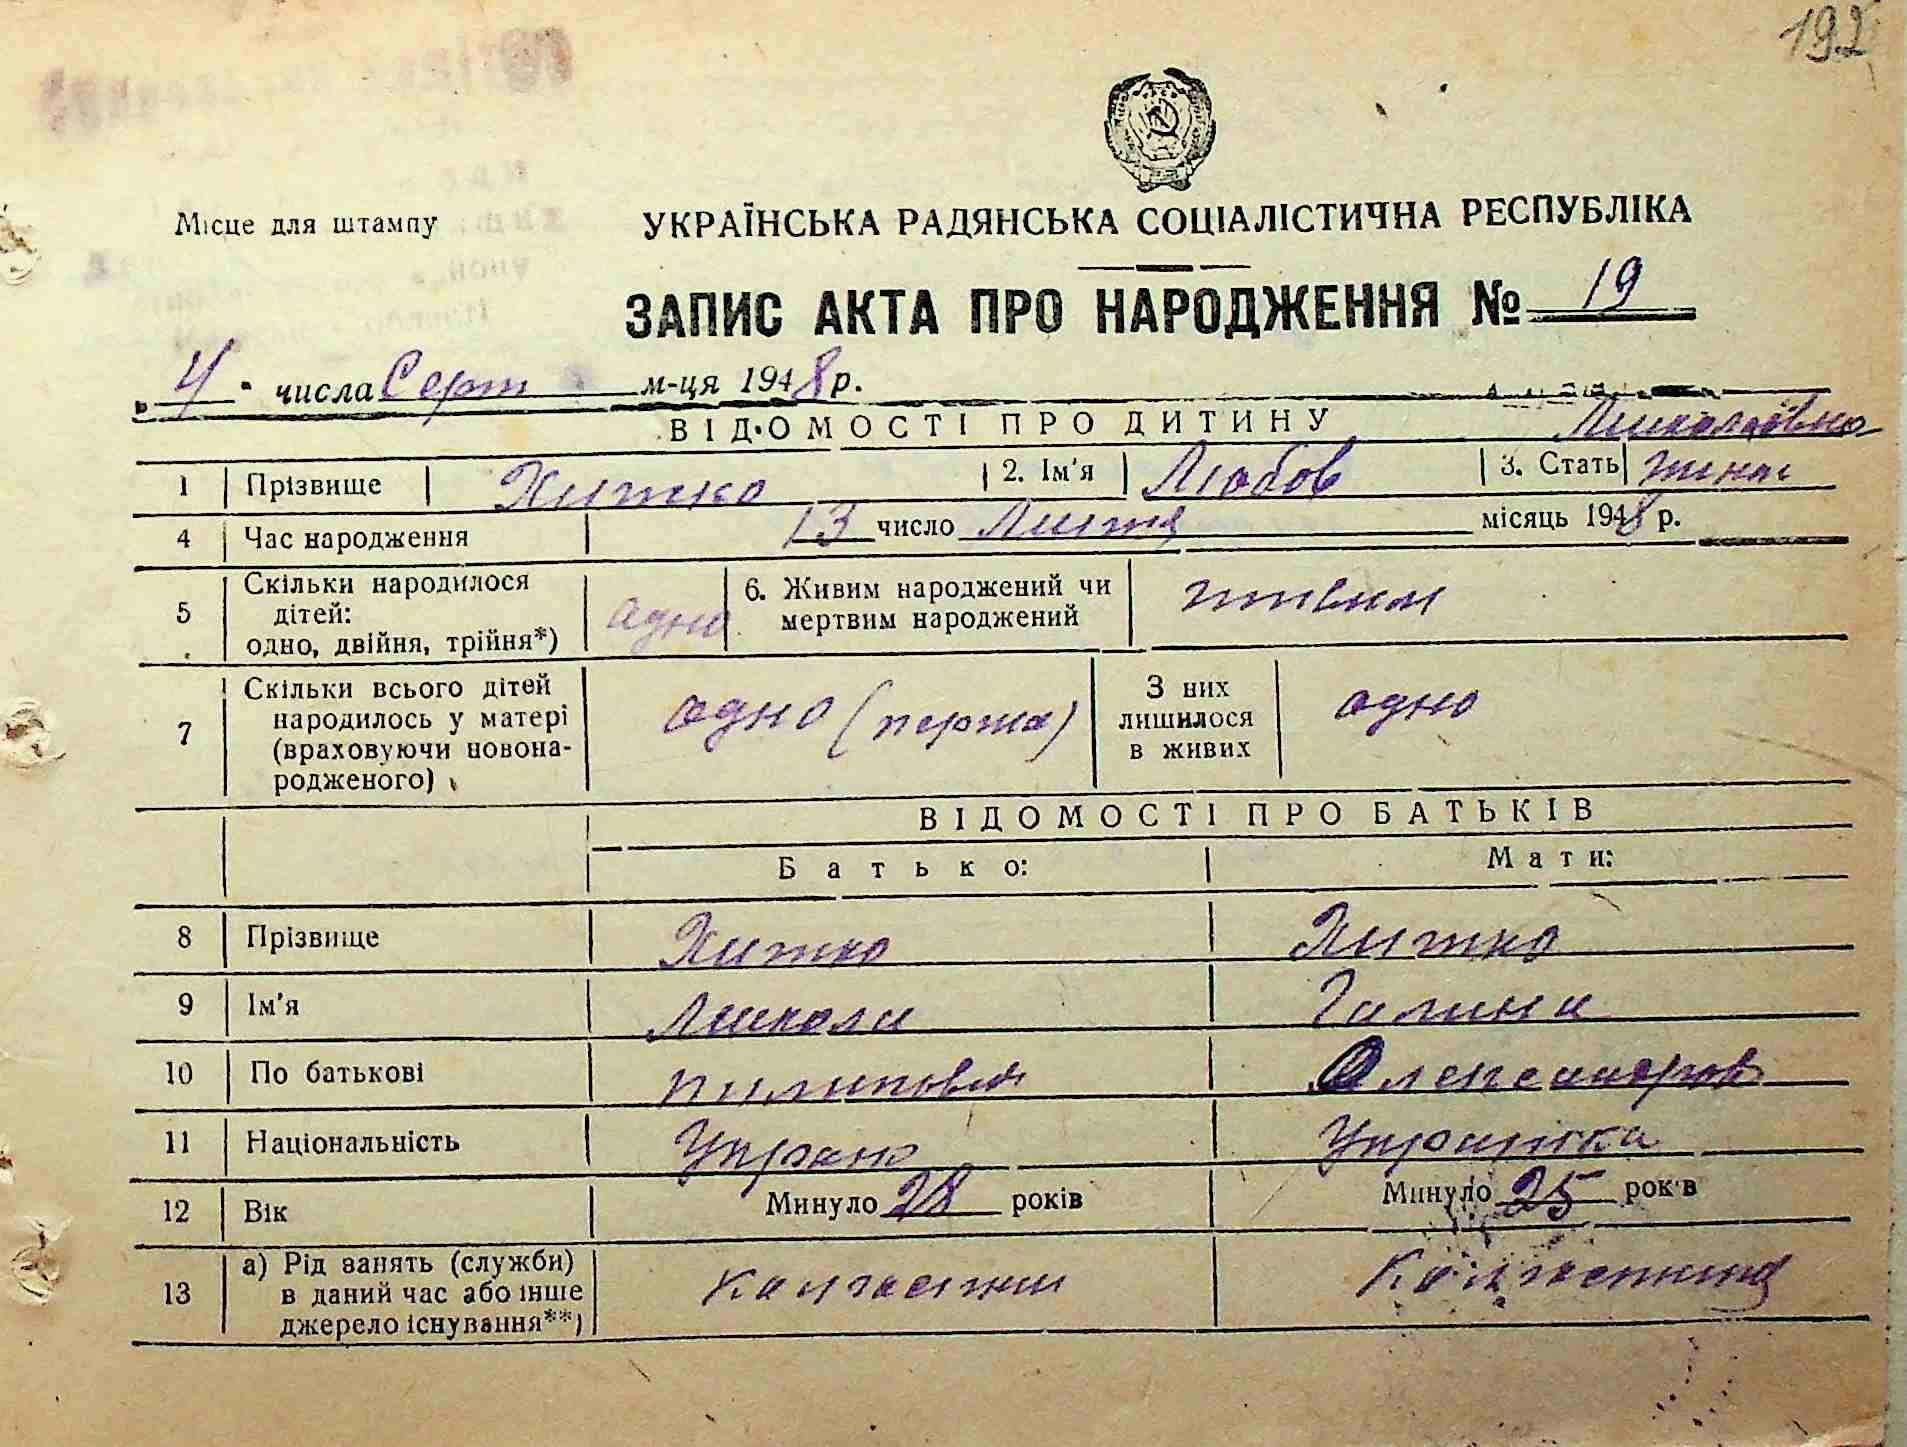 192
Місце для штампу
УКРАЇНСЬКА РАДЯНСЬКА СОЦІАЛІСТИЧНА РЕСПУБЛІКА
ЗАПИС АКТА ПРО НАРОДЖЕННЯ № 19
4 числа Серп м-ця 1948 р.
ВІДОМОСТІ ПРО ДИТИНУ
Миколаївна
1 Прізвище Хижко 2. Ім'я Любов 3. Стать жіноч
4 Час народження 13 число Липня місяць 1948 р.
5 Скільки народилося дітей: одно, двійня, трійня*) одно 6. Живим народжений чи мертвим народжений живим
7 Скільки всього дітей народилось у матері (враховуючи новонародженого) одно (перша) З них лишилося в живих одно
ВІДОМОСТІ ПРО БАТЬКІВ
Батько: Мати:
8 Прізвище Хижко Хижко
9 Ім'я Микола Галина
10 По батькові Пилипович Олександров
11 Національність Україн Українка
12 Вік Минуло 28 років Минуло 25 років
13 а) Рід занять (служби) в даний час або інше джерело існування**) Колгоспник Колгоспниця